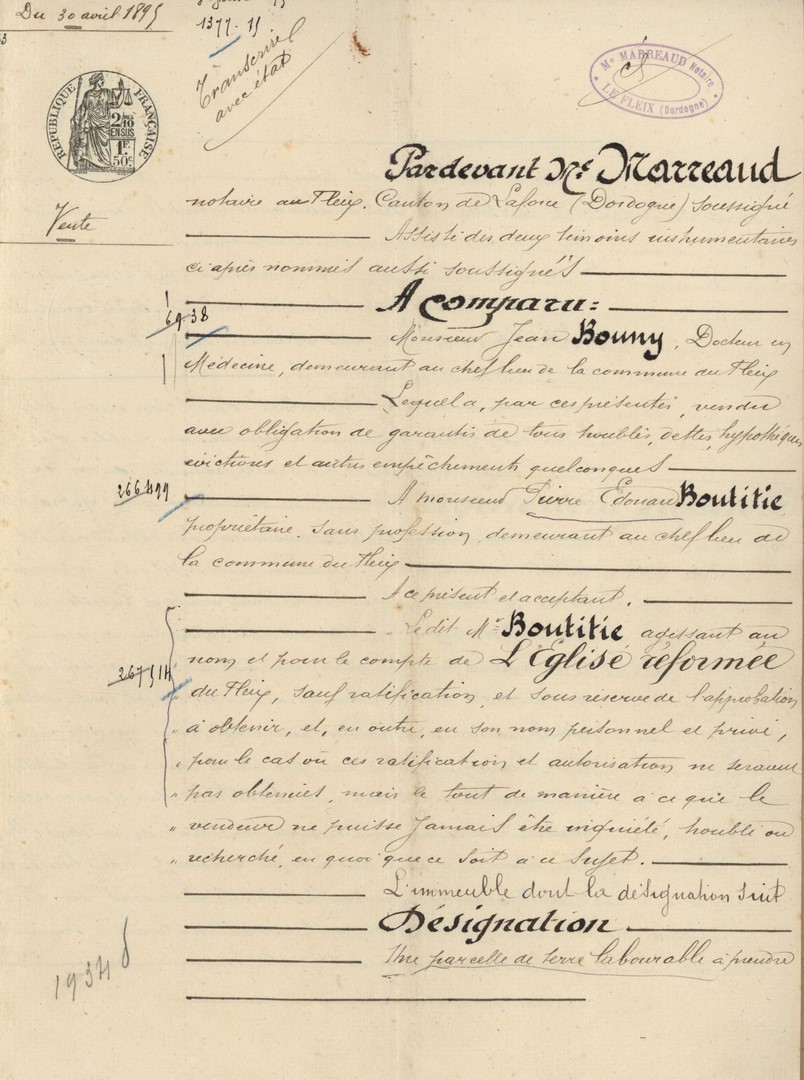 Du 30 avril 1895
1377. 15
Transcrire
avec état
Me MARREAUD Notaire
LE FLEIX (Dordogne)
RÉPUBLIQUE FRANÇAISE
2/10
EN SUS
1F
50c
Vente
Pardevant Me Marreaud
notaire au Fleix, Canton de Laforce (Dordogne) soussigné
Assisté des deux témoins instrumentaires
ci après nommés aussi soussignés
A comparu:
6938
Monsieur Jean Bouny, Docteur en
Médecine, demeurant au chef lieu de la commune du Fleix
Lequel a, par ces présentes, vendu
avec obligation de garantir de tous troubles, dettes, hypothèques
évictions et autres empêchements quelconques
266499
A monsieur Pierre Edouard Boutitie
propriétaire, sans profession, demeurant au chef lieu de
la commune du Fleix
A ce présent et acceptant.
" Le dit Mr Boutitie agissant au
nom et pour le compte de L'Eglise réformée
267514
" du Fleix, sauf ratification, et sous réserve de l'approbation
" à obtenir, et, en outre, en son nom personnel et privé,
" pour le cas où ces ratification et autorisation ne seraient
" pas obtenues, mais le tout de manière à ce que le
" vendeur ne puisse jamais être inquiété, troublé ou
" recherché, en quoi que ce soit à ce sujet.
L'immeuble dont la désignation suit
Désignation
Une parcelle de terre labourable à prendre